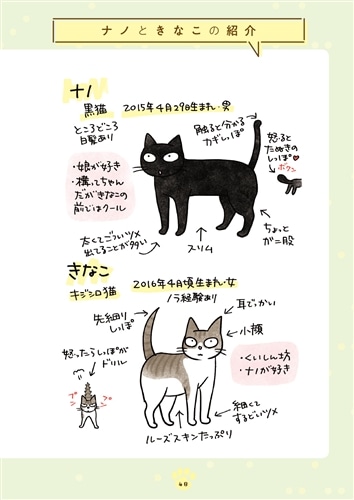 ナノときなこの紹介
ナノ
黒猫 2015年4月29日生まれ・男
ところどころ
白髪あり
触ると分かる
カギしっぽ
怒ると
たぬきの
しっぽ♥
ボワン
・娘が好き
・構ってちゃん
だがきなこの
前ではクール
太くてごついツメ
出てることが多い
スリム
ちょっと
ガニ股
きなこ
キジシロ猫 2016年4月頃生まれ・女
ノラ経験あり
先細り
しっぽ
耳でっかい
小顔
怒ったらしっぽが
ドリル
プン
プン
・くいしん坊
・ナノが好き
細くて
するどいツメ
ルーズスキンたっぷり